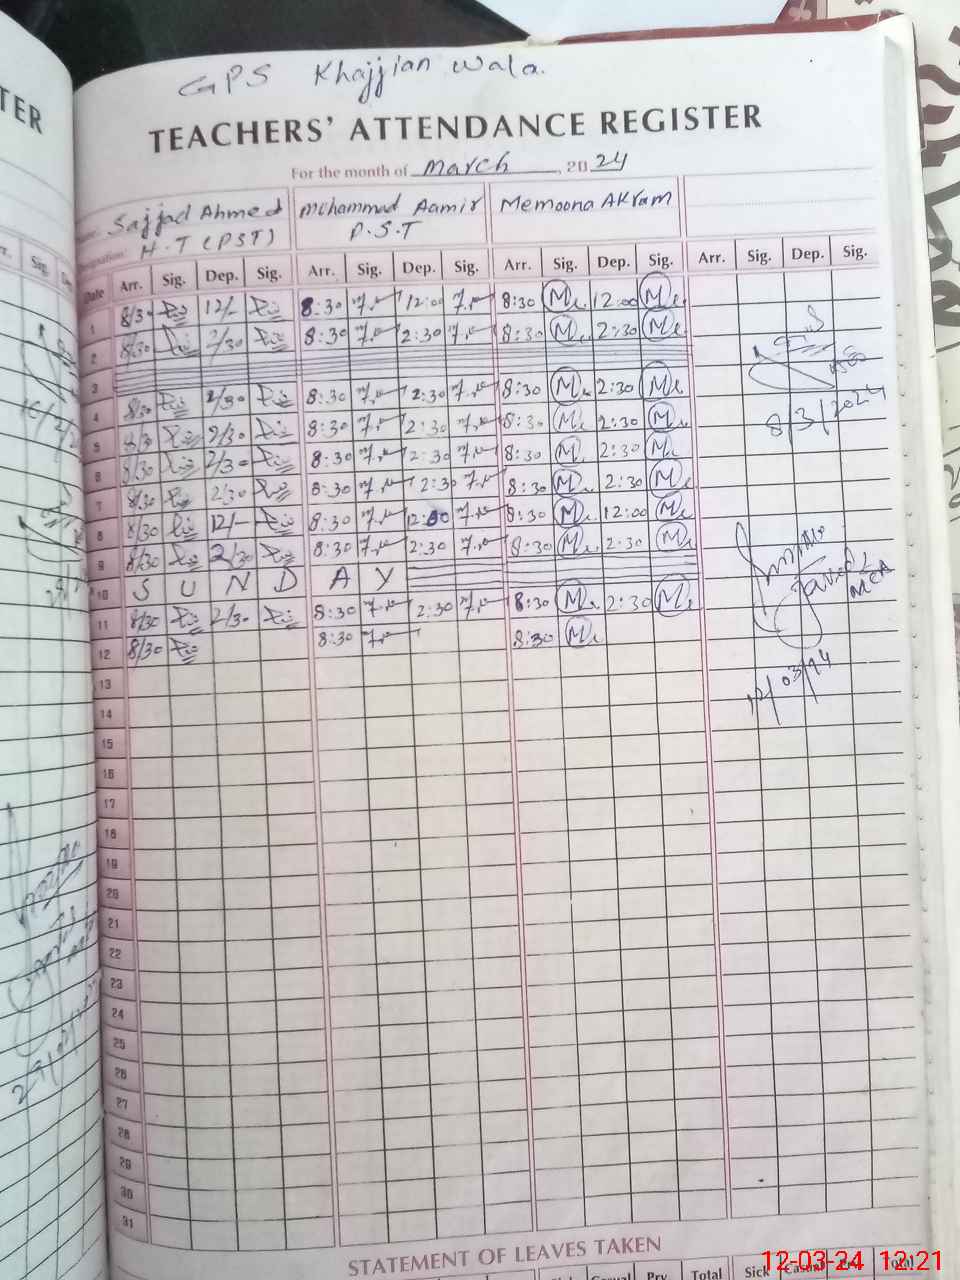 TER
GPS Khajjian wala.
TEACHERS' ATTENDANCE REGISTER
For the month of March, 2024
Name: Sajjad Ahmed Mohammad Aamir Memoona Akram
Designation: H.T (PST) P.S.T
Date Arr. Sig. Dep. Sig. Arr. Sig. Dep. Sig. Arr. Sig. Dep. Sig. Arr. Sig. Dep. Sig.
1 8/30 12/- 8:30 12:00 8:30 12:00
2 8/30 2/30 8:30 2:30 8:30 2:30
3
4 8/30 2/30 8:30 2:30 8:30 2:30
5 8/30 2/30 8:30 2:30 8:30 2:30
6 8/30 2/30 8:30 2:30 8:30 2:30
7 8/30 2/30 8:30 2:30 8:30 2:30
8 8/30 12/- 8:30 12:00 8:30 12:00
9 8/30 2/30 8:30 2:30 8:30 2:30
10 S U N D A Y
11 8/30 2/30 8:30 2:30 8:30 2:30
12 8/30 8:30 8:30
13
14
15
16
17
18
19
20
21
22
23
24
25
26
27
28
29
30
31
8/3/2024
STATEMENT OF LEAVES TAKEN
Casual Prv. Total Sick Casual Prv. Total
12-03-24 12:21